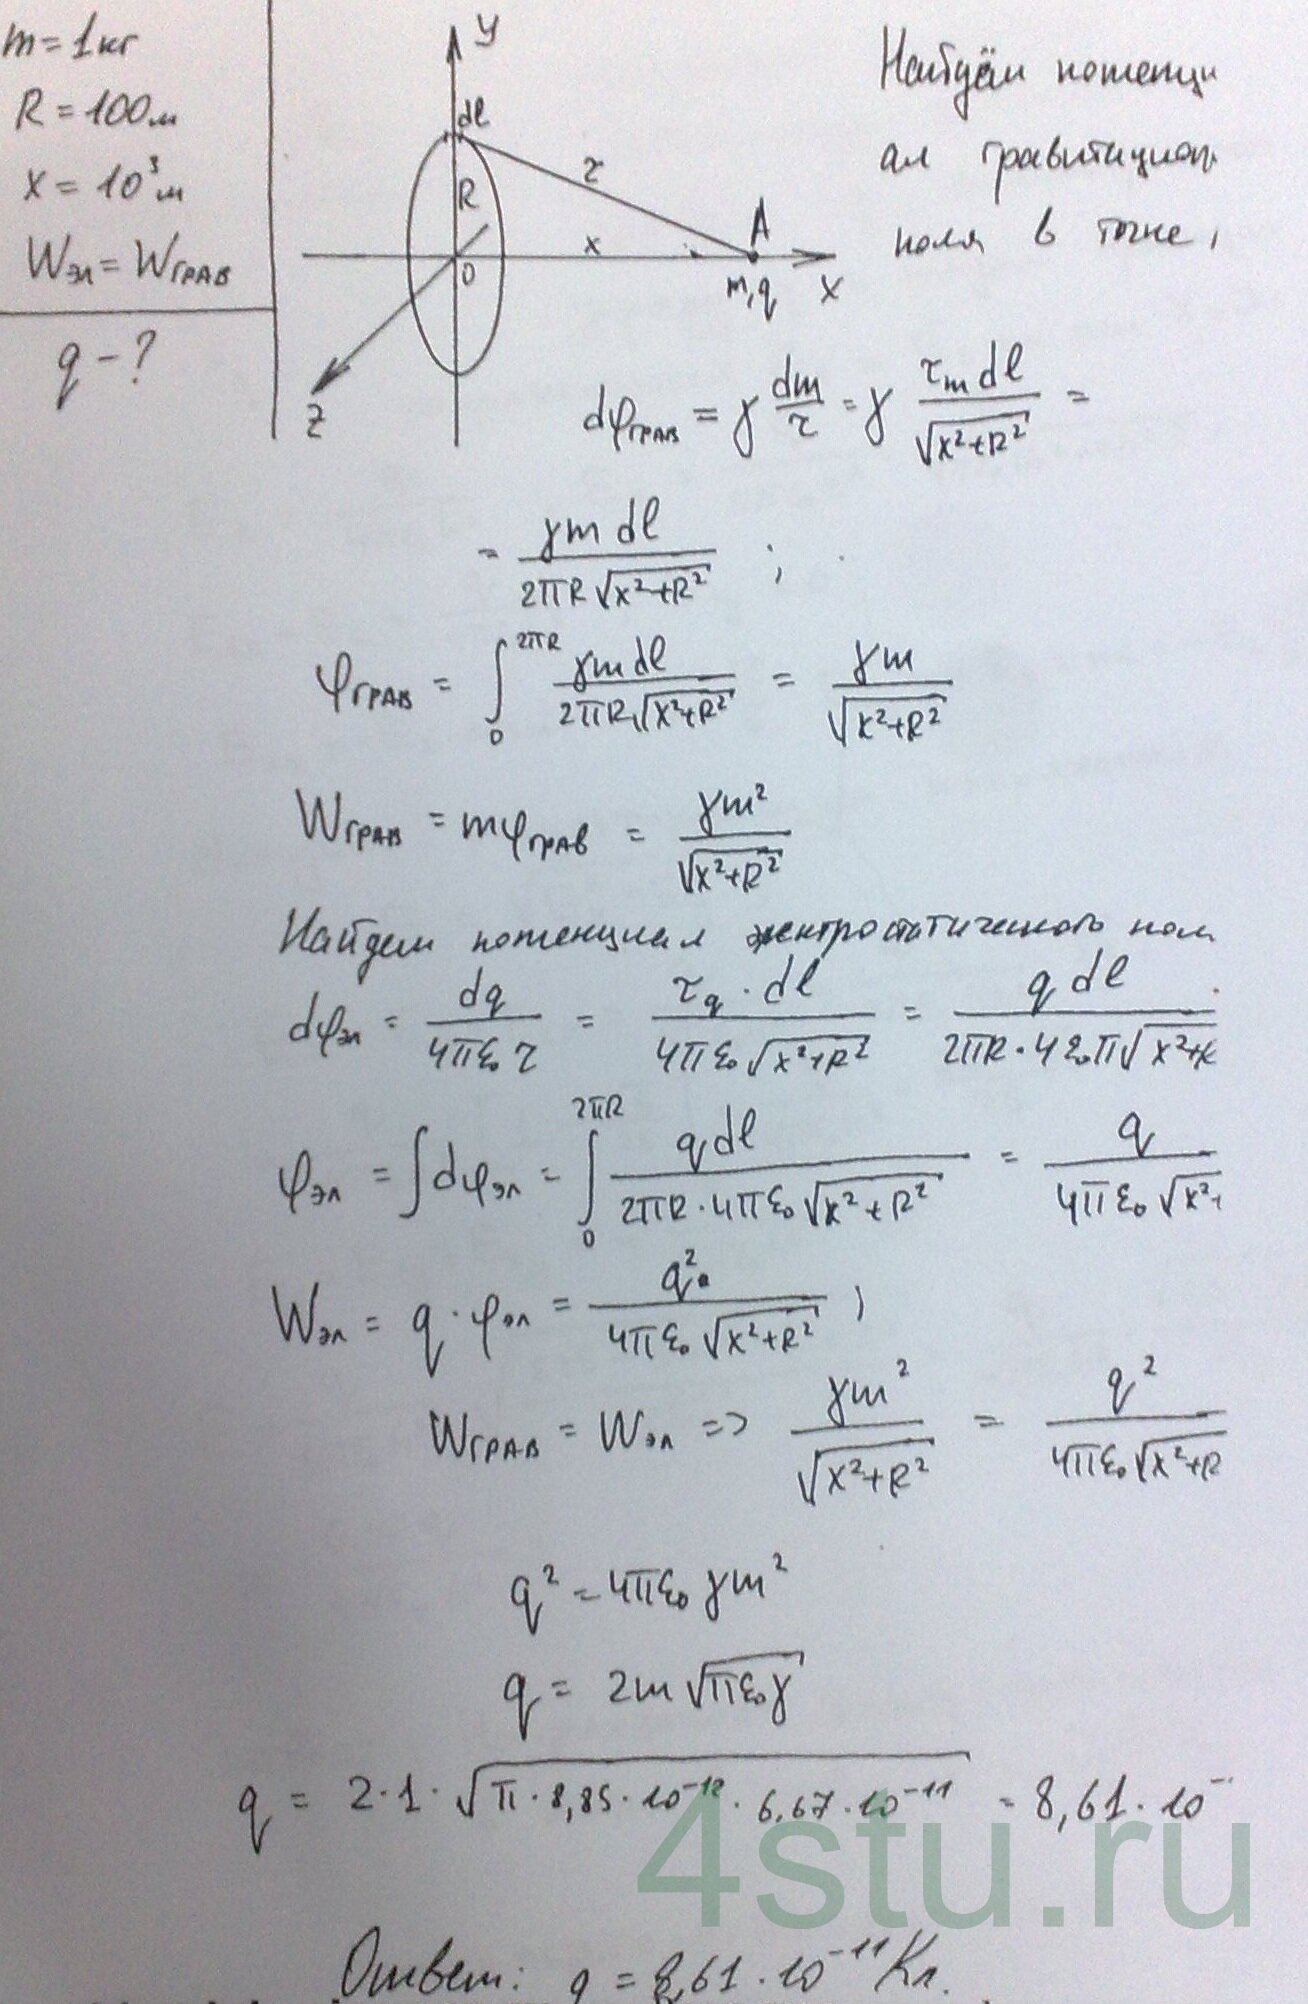 m = 1 кг
R = 100 м
x = 10³ м
Wэл = Wграв
q - ?
y
dl
R
τ
x
A
0
m, q
x
z
Найдём потенци
ал гравитацион
поля в точке
dφграв = γ dm/τ = γ τm dl/√(x²+R²) =
= γm dl/(2πR√(x²+R²)) ;
φграв = ∫₀^(2πR) γm dl/(2πR√(x²+R²)) = γm/√(x²+R²)
Wграв = mφграв = γm²/√(x²+R²)
Найдем потенциал электростатического пол
dφэл = dq/(4πε₀ τ) = τq · dl/(4πε₀√(x²+R²)) = q dl/(2πR · 4ε₀π√(x²+
φэл = ∫dφэл = ∫₀^(2πR) q dl/(2πR · 4πε₀√(x²+R²)) = q/(4πε₀√(x²+
Wэл = q · φэл = q²/(4πε₀√(x²+R²)) ;
Wграв = Wэл => γm²/√(x²+R²) = q²/(4πε₀√(x²+R
q² = 4πε₀γm²
q = 2m√(πε₀γ)
q = 2·1·√(π·8,85·10⁻¹²·6,67·10⁻¹¹) = 8,61·10⁻
4stu.ru
Ответ: q = 8,61·10⁻¹¹ Кл.